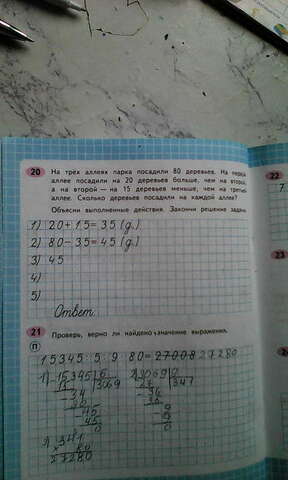 20 На трёх аллеях парка посадили 80 деревьев. На первой
аллее посадили на 20 деревьев больше, чем на второй,
а на второй — на 15 деревьев меньше, чем на третьей
аллее. Сколько деревьев посадили на каждой аллее?
Объясни выполненные действия. Закончи решение задачи.
1) 20+15=35 (д.)
2) 80-35=45 (д.)
3) 45
4)
5)
Ответ
21 Проверь, верно ли найдено значение выражения.
П
15345:5:9 80=27008 27280
1) 15345 5
15 3069
34
30
45
45
0
2) 3069 9
27 341
36
36
9
9
0
3) 341
80
27280
22
7
23